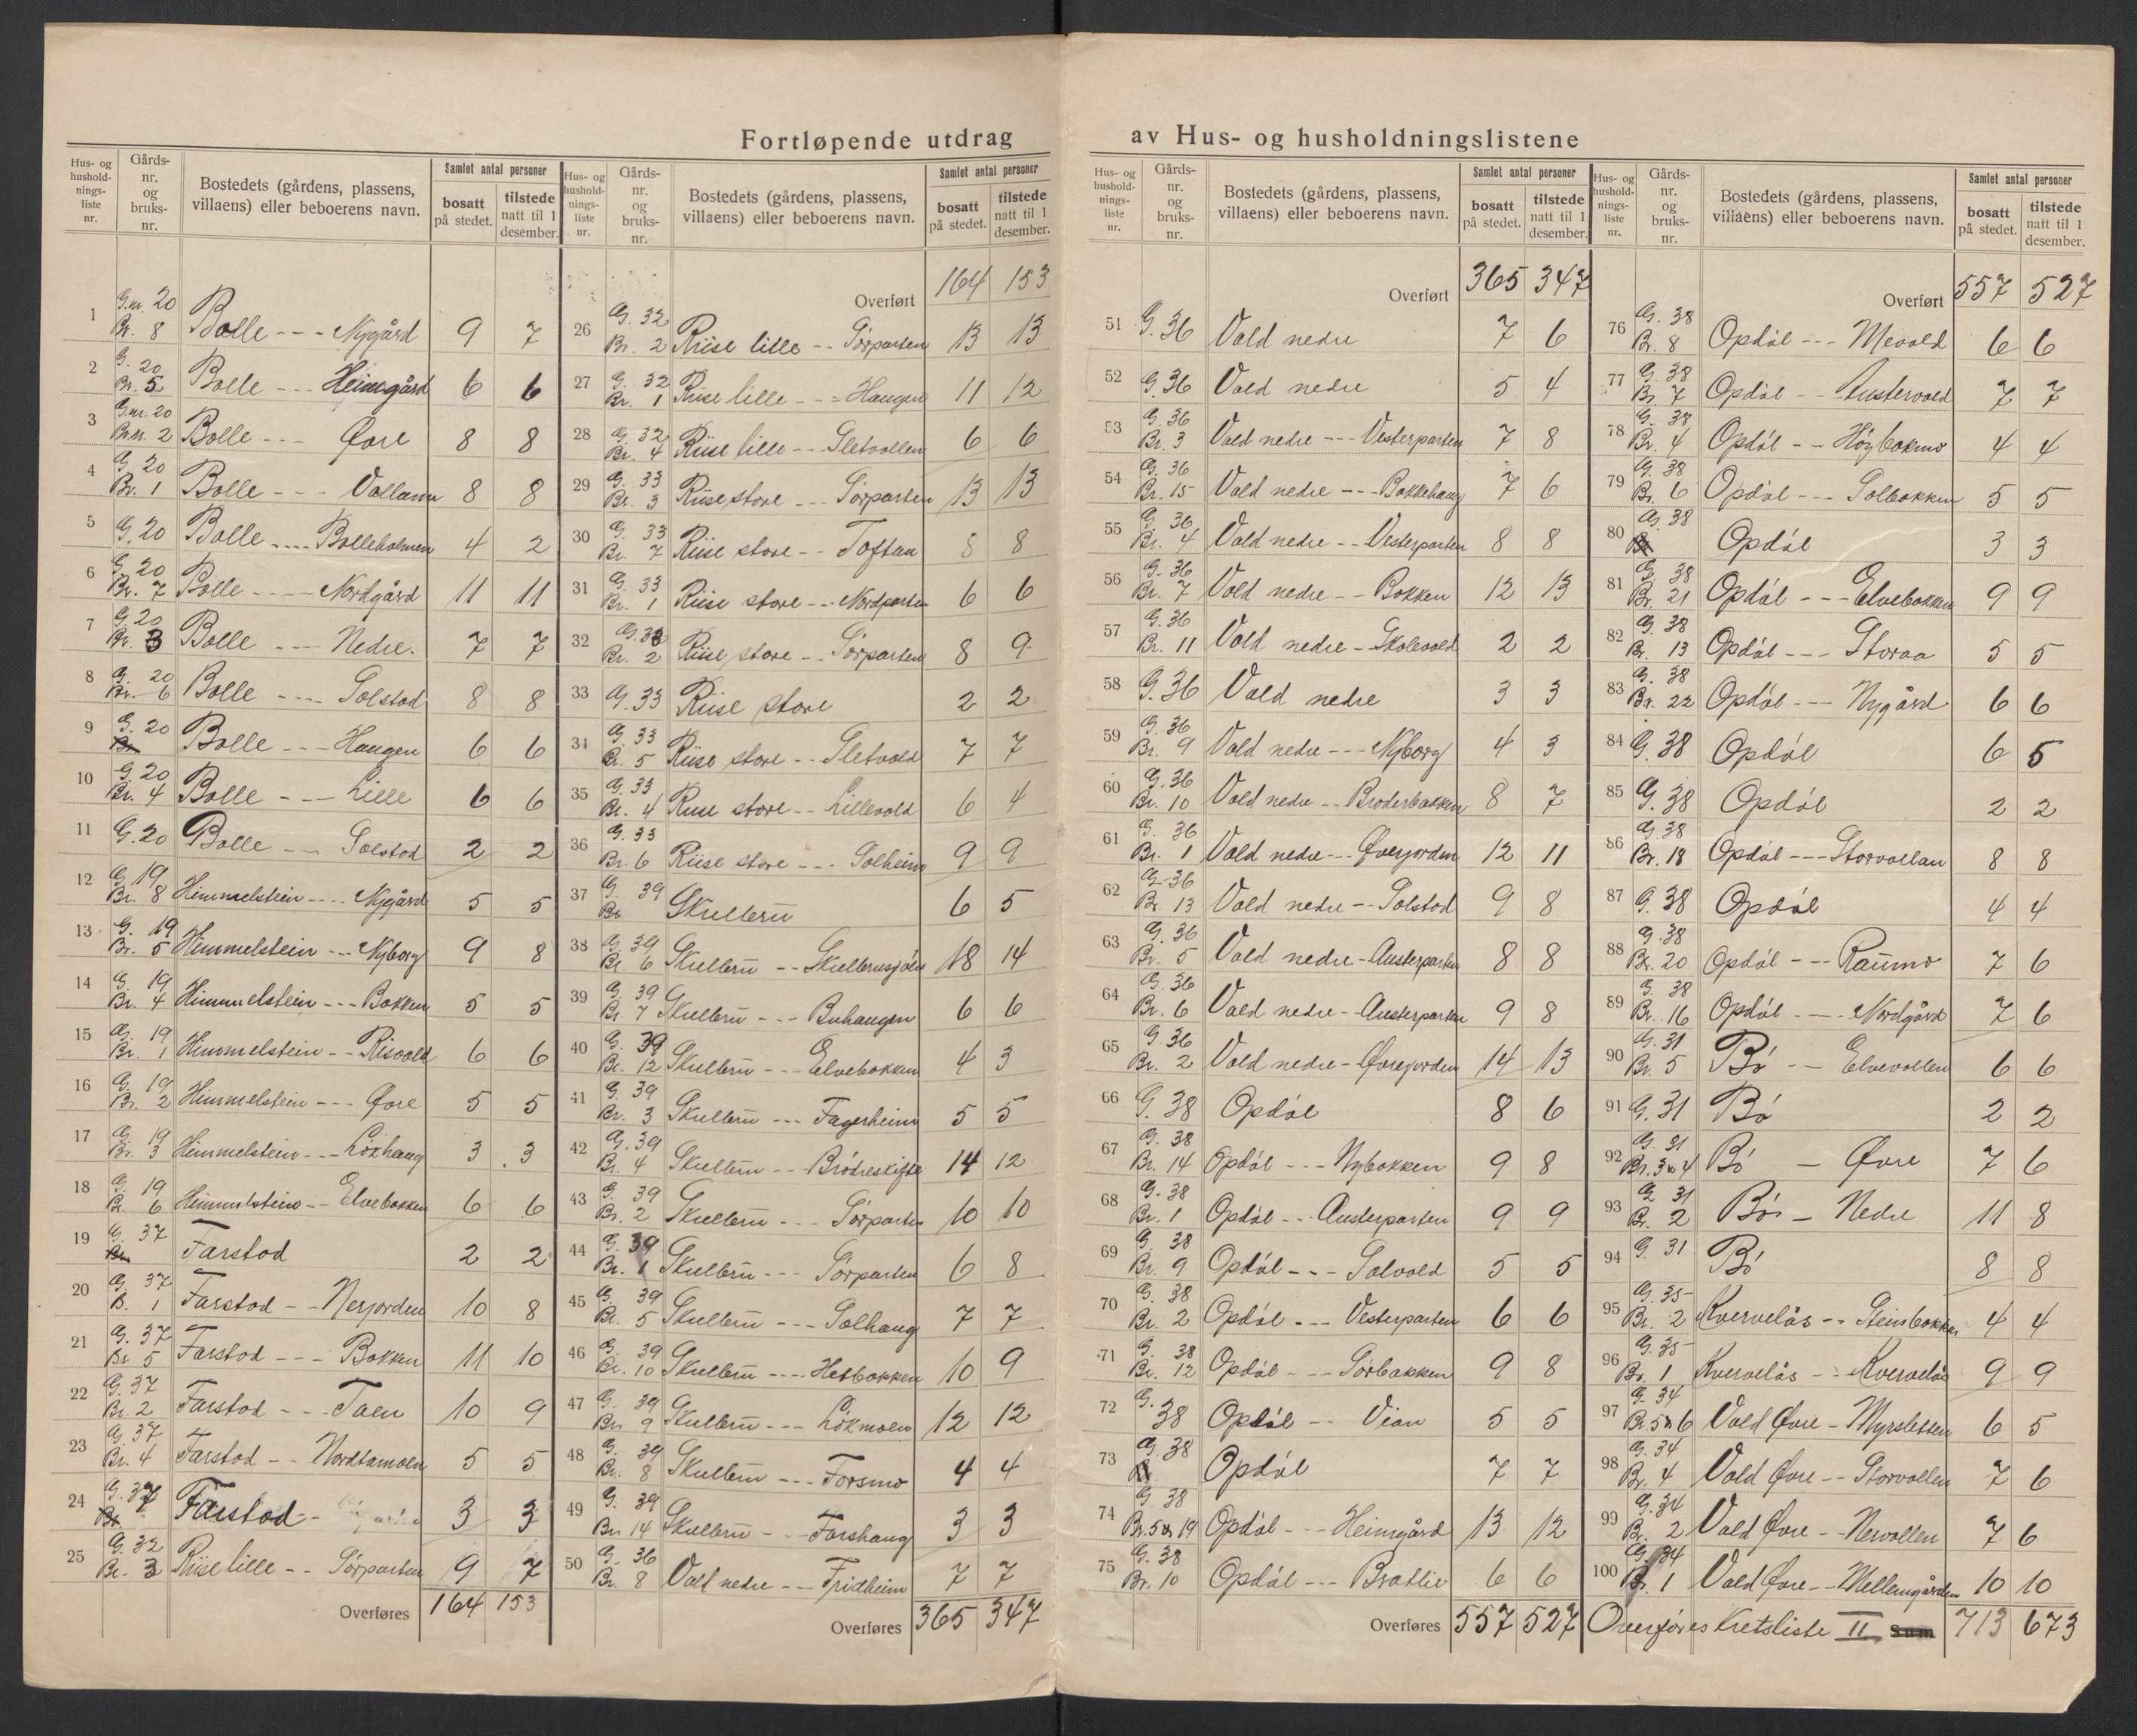 Fortløpende utdrag av Hus- og husholdningslistene
Hus- og husholdnings-liste nr. | Gårds-nr. og bruks-nr. | Bostedets (gårdens, plassens, villaens) eller beboerens navn. | Samlet antal personer | bosatt på stedet. | tilstede natt til 1 desember.
1 G.nr. 20 Br. 8 Bolle --- Nygård 9 7
2 G. 20 Br. 5 Bolle --- Heimgård 6 6
3 G.nr. 20 Br.nr. 2 Bolle --- Øvre 8 8
4 G. 20 Br. 1 Bolle --- Vollann 8 8
5 G. 20 Bolle .... Bolleholmen 4 2
6 G. 20 Br. 7 Bolle ---- Nordgård 11 11
7 G. 20 Br. 3 Bolle --- Nedre. 7 7
8 G. 20 Br. 6 Bolle ---- Solstad 8 8
9 G. 20 Br Bolle --- Haugen 6 6
10 G. 20 Br. 4 Bolle --- Lille 6 6
11 G. 20 Bolle --- Solstad 2 2
12 G. 19 Br. 8 Himmelstein ---- Nygård 5 5
13 G. 19 Br. 5 Himmelstein --- Nyborg 9 8
14 G. 19 Br. 4 Himmelstein --- Bakken 5 5
15 G. 19 Br. 1 Himmelstein -- Risvold 6 6
16 G. 19 Br. 2 Himmelstein --- Øvre 5 5
17 G. 19 Br. 3 Himmelstein --- Løkhaug 3 3
18 G. 19 Br. 6 Himmelstein -- Elvebakken 6 6
19 G. 37 Br Farstad 2 2
20 G. 37 B. 1 Farstad -- Nerjorden 10 8
21 G. 37 Br 5 Farstad --- Bakken 11 10
22 G. 37 Br. 2 Farstad --- Taen 10 9
23 G. 37 Br. 4 Farstad -- Nordtamoen 5 5
24 G. 37 Br Farstad - 3 3
25 G. 32 Br. 3 Riise lille -- Sørparten 9 7
Overføres 164 153
Hus- og husholdnings-liste nr. | Gårds-nr. og bruks-nr. | Bostedets (gårdens, plassens, villaens) eller beboerens navn. | Samlet antal personer | bosatt på stedet. | tilstede natt til 1 desember.
Overført 164 153
26 G. 32 Br. 2 Riise lille -- Sørparten 13 13
27 G. 32 Br. 1 Riise lille --- Haugen 11 12
28 G. 32 Br. 4 Riise lille --- Sletvollen 6 6
29 G. 33 Br. 3 Riise store --- Sørparten 13 13
30 G. 33 Br. 7 Riise store -- Toftan 8 8
31 G. 33 Br. 1 Riise store --- Nordparten 6 6
32 G. 33 Br. 2 Riise store -- Sørparten 8 9
33 G. 33 Riise store 2 2
34 G. 33 Br. 5 Riise store -- Sletvold 7 7
35 G. 33 Br. 4 Riise store -- Lillevold 6 4
36 G. 33 Br. 6 Riise store --- Solheim 9 9
37 G. 39 Br Skulbrū 6 5
38 G. 39 Br 6 Skulbrū -- Skulbrusjølu 18 14
39 G. 39 Br 7 Skulbrū --- Buhaugen 6 6
40 G. 39 Br. 12 Skulbrū --- Elvebakken 4 3
41 G. 39 Br. 3 Skulbrū --- Fagerheim 5 5
42 G. 39 Br. 4 Skulbrū --- Brødreskifte 14 12
43 G. 39 Br. 2 Skulbrū --- Sørparten 10 10
44 G. 39 Br. 1 Skulbrū --- Sørparten 6 8
45 G. 39 Br. 5 Skulbrū --- Solhaug 7 7
46 G. 39 Br. 10 Skulbrū ---- Hesbakken 10 9
47 G. 39 Br. 9 Skulbrū --- Løkmoen 12 12
48 G. 39 Br. 8 Skulbrū --- Forsmo 4 4
49 G. 39 Br. 14 Skulbrū --- Forshaug 3 3
50 G. 36 Br. 8 Vold nedre --- Fridheim 7 7
Overføres 365 347
Hus- og husholdnings-liste nr. | Gårds-nr. og bruks-nr. | Bostedets (gårdens, plassens, villaens) eller beboerens navn. | Samlet antal personer | bosatt på stedet. | tilstede natt til 1 desember.
Overført 365 347
51 G. 36 Vold nedre 7 6
52 G. 36 Vold nedre 5 4
53 G. 36 Br. 3 Vold nedre --- Vesterparten 7 8
54 G. 36 Br. 15 Vold nedre --- Bakkehaug 7 6
55 G. 36 Br. 4 Vold nedre -- Vesterparten 8 8
56 G. 36 Br. 7 Vold nedre -- Bakken 12 13
57 G. 36 Br. 11 Vold nedre - Skolevold 2 2
58 G. 36 Vold nedre 3 3
59 G. 36 Br. 9 Vold nedre --- Nyborg 4 3
60 G. 36 Br. 10 Vold nedre -- Broderbakken 8 7
61 G. 36 Br. 1 Vold nedre --- Øverjorden 12 11
62 G. 36 Br. 13 Vold nedre -- Solstad 9 8
63 G. 36 Br. 5 Vold nedre - Austerparten 8 8
64 G. 36 Br. 6 Vold nedre - Austerparten 9 8
65 G. 36 Br. 2 Vold nedre - Øverjorden 14 13
66 G. 38 Opdøl 8 6
67 G. 38 Br. 14 Opdøl --- Nybakken 9 8
68 G. 38 Br. 1 Opdøl --- Austerparten 9 9
69 G. 38 Br. 9 Opdøl --- Solvold 5 5
70 G. 38 Br. 2 Opdøl --- Vesterparten 6 6
71 G. 38 Br. 12 Opdøl --- Sørbakken 9 8
72 G. 38 Opdøl -- Vian 5 5
73 G. 38 Opdøl 7 7
74 G. 38 Br. 5 & 19 Opdøl --- Heimgård 13 12
75 G. 38 Br. 10 Opdøl --- Bratlie 6 6
Overføres 557 527
Hus- og husholdnings-liste nr. | Gårds-nr. og bruks-nr. | Bostedets (gårdens, plassens, villaens) eller beboerens navn. | Samlet antal personer | bosatt på stedet. | tilstede natt til 1 desember.
Overført 557 527
76 G. 38 Br. 8 Opdøl --- Mevold 6 6
77 G. 38 Br. 7 Opdøl -- Austervold 7 7
78 G. 38 Br. 4 Opdøl -- Høgbakmo 4 4
79 G. 38 Br. 6 Opdøl --- Solbakken 5 5
80 G. 38 Opdøl 3 3
81 G. 38 Br. 21 Opdøl --- Elvebakken 9 9
82 G. 38 Br. 13 Opdøl --- Storaa 5 5
83 G. 38 Br. 22 Opdøl --- Nygård 6 6
84 G. 38 Opdøl 6 5
85 G. 38 Opdøl 2 2
86 G. 38 Br. 18 Opdøl --- Storvollan 8 8
87 G. 38 Opdøl 4 4
88 G. 38 Br. 20 Opdøl --- Raumo 7 6
89 G. 38 Br. 16 Opdøl --- Nordgård 7 6
90 G. 31 Br. 5 Bø -- Elvevollen 6 6
91 G. 31 Bø 2 2
92 G. 31 Br. 3 & 4 Bø - Øvre 7 6
93 G. 31 Br. 2 Bø - Nedre 11 8
94 G. 31 Bø 8 8
95 G. 35 Br. 2 Kvervelås -- Steinsbakken 4 4
96 G. 35 Br. 1 Kvervelås -- Kvervelås 9 9
97 G. 34 Br. 5 & 6 Vold Øvre - Myrsletten 6 5
98 G. 34 Br. 4 Vold Øvre -- Storvollen 7 6
99 G. 34 Br. 2 Vold Øvre -- Nervollen 7 6
100 G. 34 Br. 1 Vold Øvre -- Mellemgården 10 10
Overføres Kretsliste II Sum 713 673